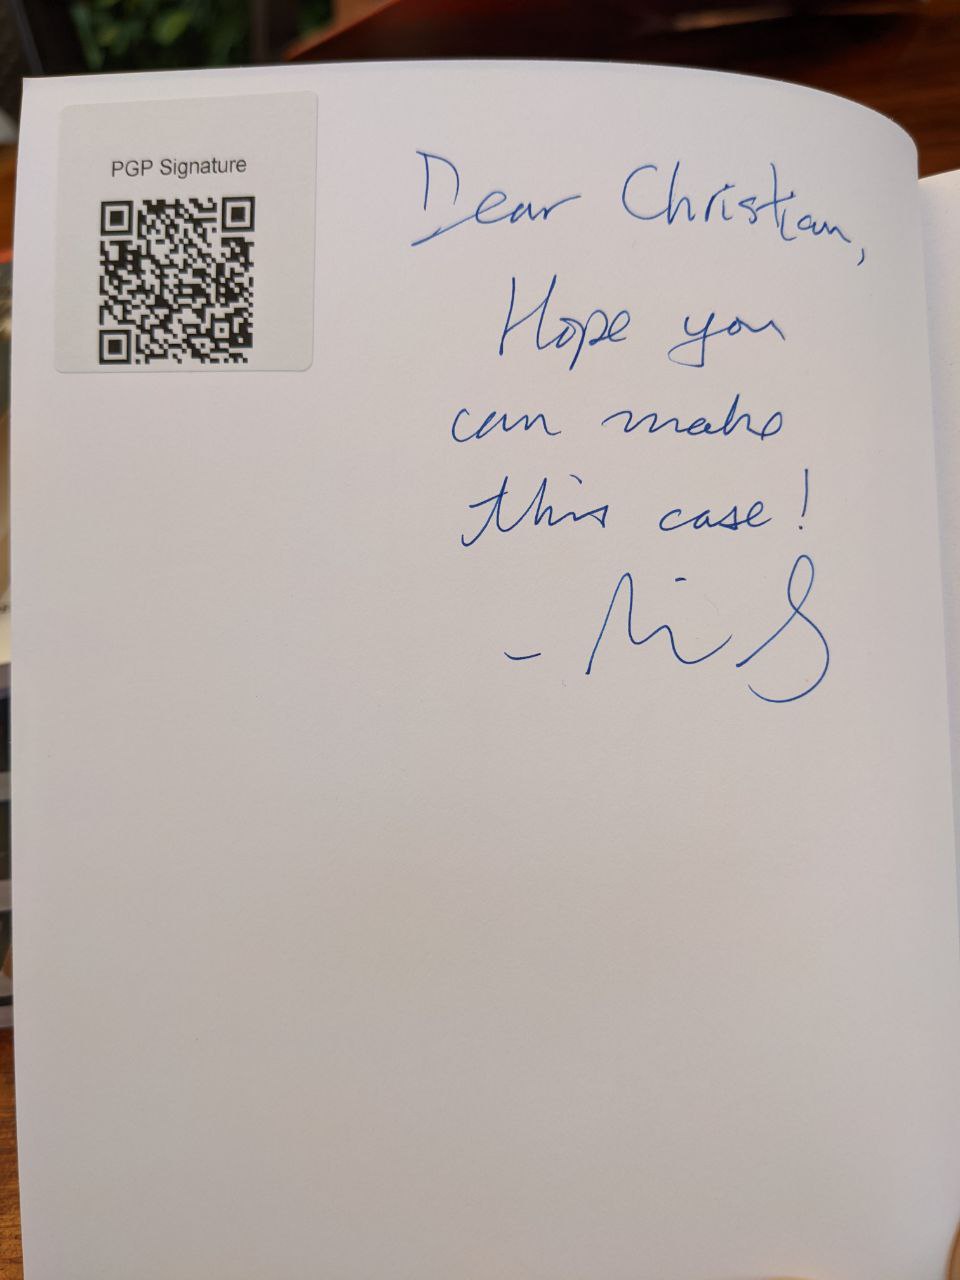 PGP Signature
Dear Christian,
Hope you
can make
this case!